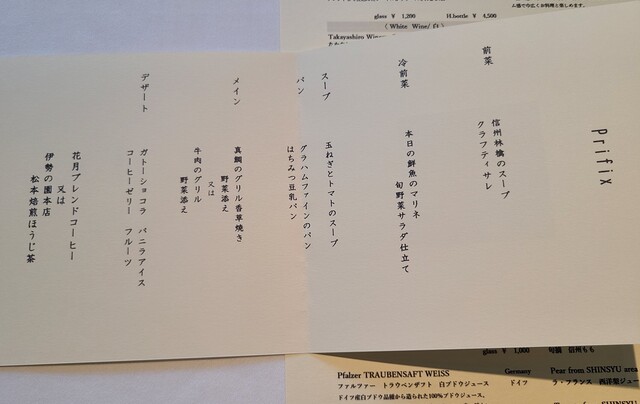 Prifix
前菜
信州林檎のスープ
クラフティサレ
冷前菜
本日の鮮魚のマリネ
旬野菜サラダ仕立て
スープ
玉ねぎとトマトのスープ
パン
グラハムファインのパン
はちみつ豆乳パン
メイン
真鯛のグリル香草焼き
野菜添え
又は
牛肉のグリル
野菜添え
デザート
ガトーショコラ バニラアイス
コーヒーゼリー フルーツ
花月ブレンドコーヒー
又は
伊勢の園本店
松本焙煎ほうじ茶
glass ¥ 1,200 H.bottle ¥ 4,500
( White Wine/白 )
Takayashiro Wine
glass ¥ 1,000 旬摘 信州もも
Pfalzer TRAUBENSAFT WEISS Germany Pear from SHINSYU area
ファルファー トラウベンザフト 白ブドウジュース ドイツ ラ・フランス 西洋梨ジュー
ドイツ産白ブドウ品種から造られた100%ブドウジュース。